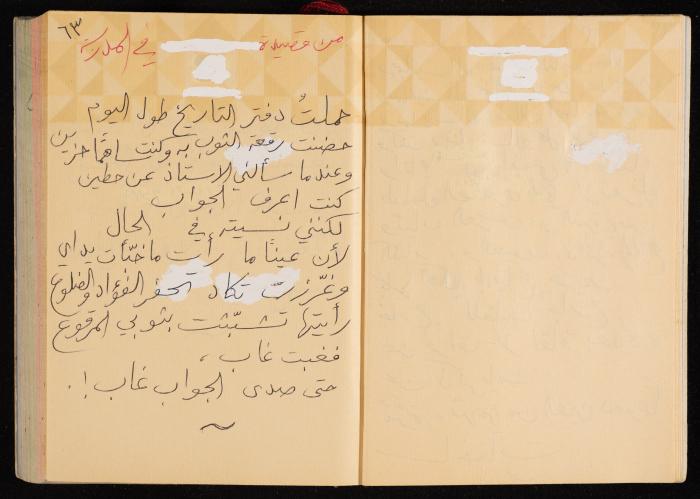 ٦٣
من قصيدة في المدرسة
حملتُ دفتر التاريخ طول اليوم
حضنت رقعة الثوب به وكنت ساهمًا حزين
وعندما سألني الاستاذ عن حطين
كنت اعرف الجواب
لكنني نسيته في الحال
لأن عينًا ما رأت ما خبّأت يداي
وغرّزت تكاد تحفر الفؤاد والضلوع
رأيتها تشبّثت بثوبي المرقوع
فغبت غاب،
حتى صدى الجواب غاب!.